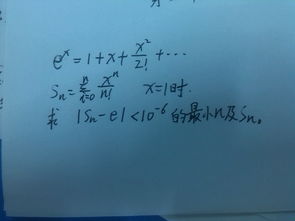 eˣ = 1 + x + x²/2! + ···
Sₙ = Σₙ₌₀ⁿ xⁿ/n!   x=1时.
求 |Sₙ - e| < 10⁻⁶ 的最小n及Sₙ。